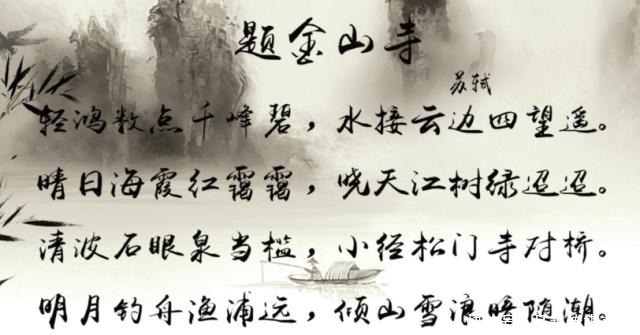 题金山寺
苏轼
轻鸿数点千峰碧，水接云边四望遥。
晴日海霞红霭霭，晓天江树绿迢迢。
清波石眼泉当槛，小径松门寺对桥。
明月钓舟渔浦远，倾山雪浪暗随潮